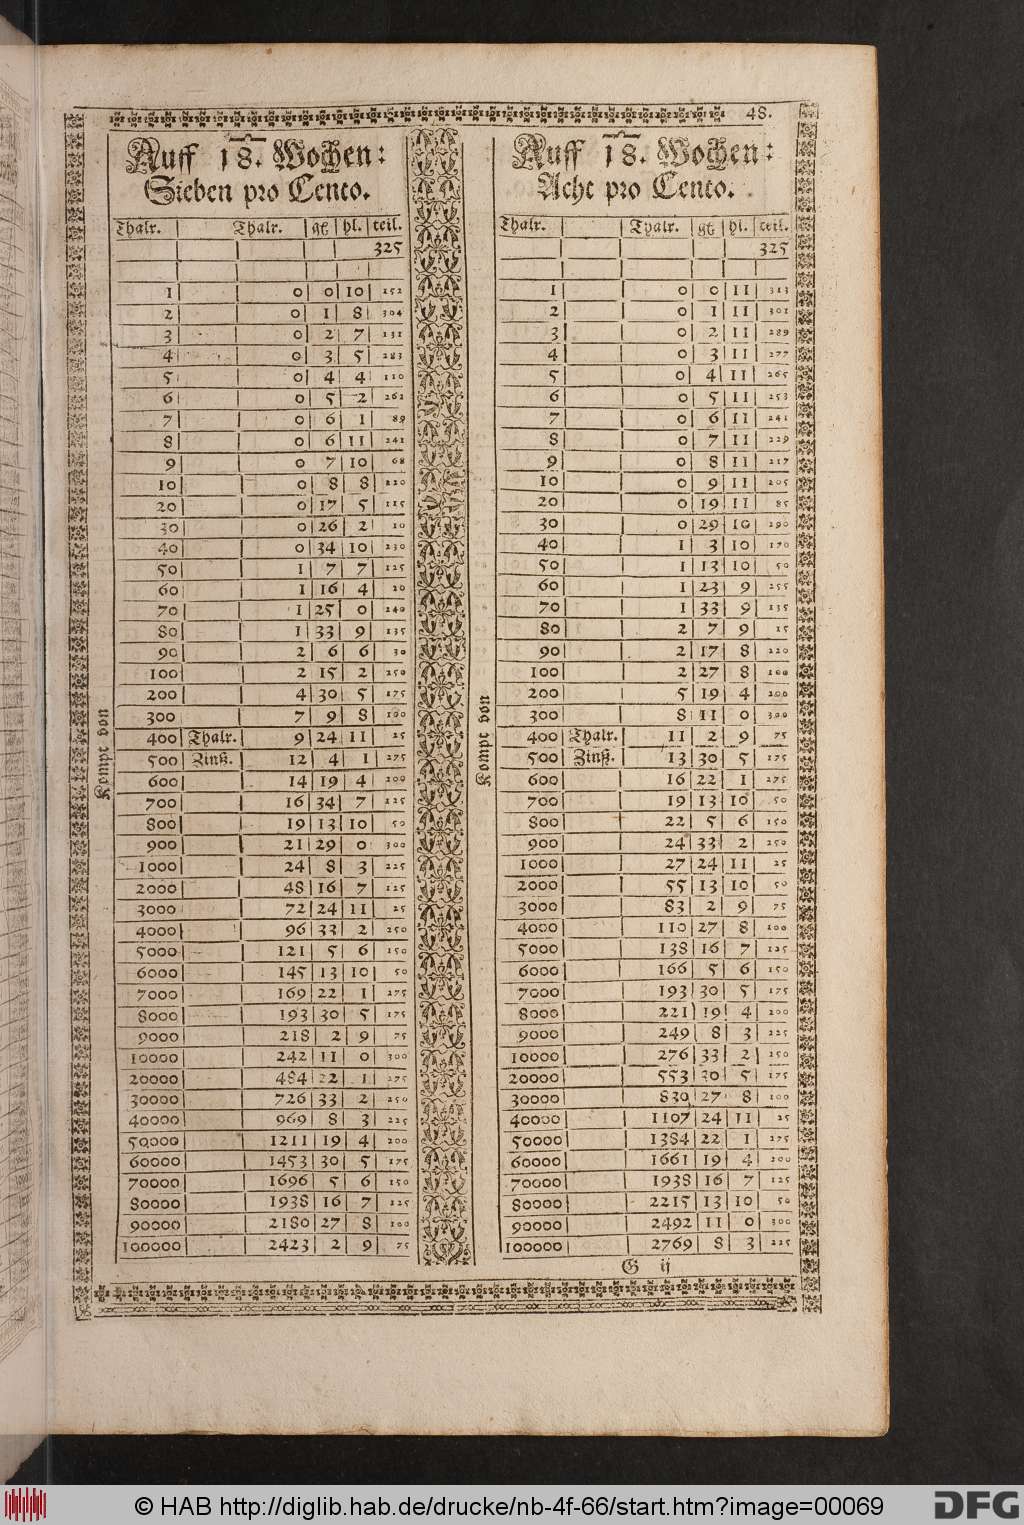 48.
Auff 18. Wochen:
Sieben pro Cento.
Thalr. Thalr. gℓ hl. teil.
325
1 0 0 10 252
2 0 1 8 304
3 0 2 7 131
4 0 3 5 283
5 0 4 4 110
6 0 5 2 262
7 0 6 1 89
8 0 6 11 241
9 0 7 10 68
10 0 8 8 220
20 0 17 5 115
30 0 26 2 10
40 0 34 10 230
50 1 7 7 125
60 1 16 4 20
70 1 25 0 240
80 1 33 9 135
90 2 6 6 30
100 2 15 2 250
200 4 30 5 175
300 7 9 8 100
400 Thalr. 9 24 11 25
500 Zinß. 12 4 1 275
600 14 19 4 200
700 16 34 7 125
800 19 13 10 50
900 21 29 0 300
1000 24 8 3 225
2000 48 16 7 125
3000 72 24 11 25
4000 96 33 2 250
5000 121 5 6 150
6000 145 13 10 50
7000 169 22 1 275
8000 193 30 5 175
9000 218 2 9 75
10000 242 11 0 300
20000 484 22 1 275
30000 726 33 2 250
40000 969 8 3 225
50000 1211 19 4 200
60000 1453 30 5 175
70000 1696 5 6 150
80000 1938 16 7 125
90000 2180 27 8 100
100000 2423 2 9 75
Kompt von
Auff 18. Wochen:
Acht pro Cento.
Thalr. Thalr. gℓ hl. teil.
325
1 0 0 11 313
2 0 1 11 301
3 0 2 11 289
4 0 3 11 277
5 0 4 11 265
6 0 5 11 253
7 0 6 11 241
8 0 7 11 229
9 0 8 11 217
10 0 9 11 205
20 0 19 11 85
30 0 29 10 290
40 1 3 10 170
50 1 13 10 50
60 1 23 9 255
70 1 33 9 135
80 2 7 9 15
90 2 17 8 220
100 2 27 8 100
200 5 19 4 200
300 8 11 0 300
400 Thalr. 11 2 9 75
500 Zinß. 13 30 5 175
600 16 22 1 275
700 19 13 10 50
800 22 5 6 150
900 24 33 2 250
1000 27 24 11 25
2000 55 13 10 50
3000 83 2 9 75
4000 110 27 8 100
5000 138 16 7 125
6000 166 5 6 150
7000 193 30 5 175
8000 221 19 4 200
9000 249 8 3 225
10000 276 33 2 250
20000 553 30 5 175
30000 830 27 8 100
40000 1107 24 11 25
50000 1384 22 1 275
60000 1661 19 4 200
70000 1938 16 7 125
80000 2215 13 10 50
90000 2492 11 0 300
100000 2769 8 3 225
Kompt von
G ij
© HAB http://diglib.hab.de/drucke/nb-4f-66/start.htm?image=00069
DFG